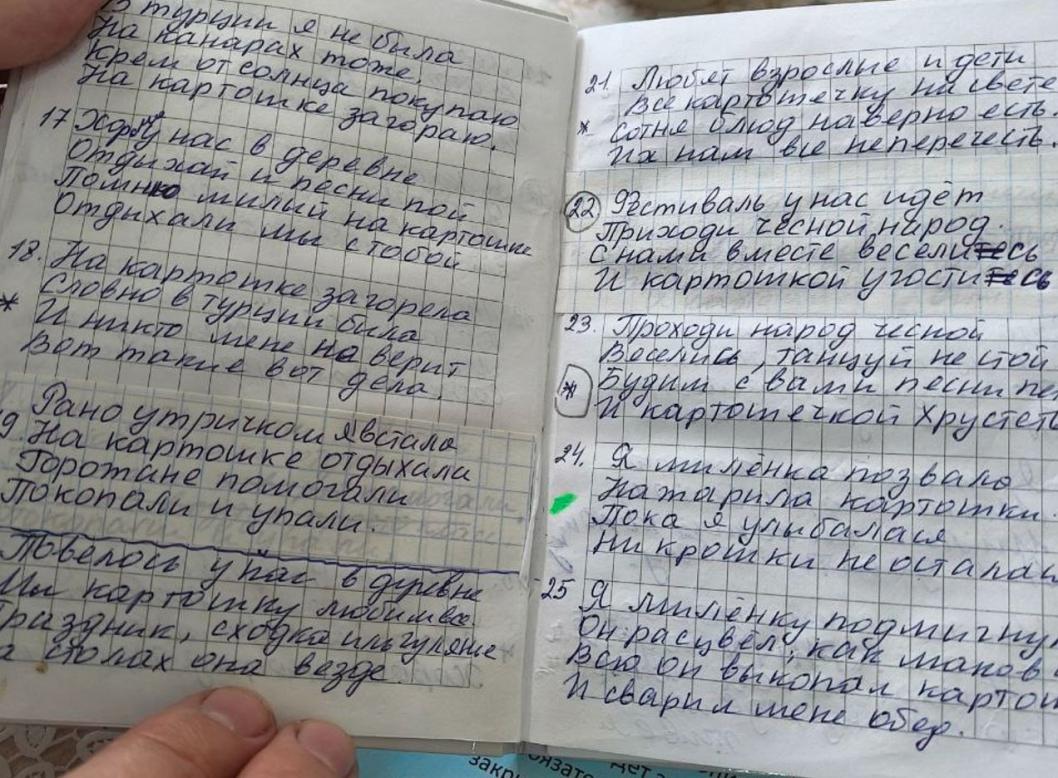 В турции я не была
На канарах тоже.
Крем от солнца покупаю
На картошке загораю.
17 Хорошо у нас в деревне
Отдыхай и песни пой
Помню милый на картошке
Отдыхали мы с тобой
18. На картошке загорела
Словно в турции была
* И никто мене не верит
Вот такие вот дела.
Рано утричком я встала
9. На картошке отдыхала
Горожане помогали
Покопали и упали.
Повелось у нас в деревне
Мы картошку любим все
Праздник, сходка иль гуляние
на столах она везде.
21. Любят взрослые и дети
Все картотечку на свете
* Сотня блюд наверно есть.
Их нам все неперечесть.
22 Фестиваль у нас идёт
Приходи чесной народ.
С нами вместе веселись
И картошкой угостись
23. Проходи народ чесной
Веселись, танцуй не стой
* Будим с вами песни пе
И картошечкой хрустет
24. Я милёнка позвала
Нажарила картошки
Пока я улыбалася
Ни крошки не остала
25 Я милёнку подмигну
Он расцвёл, как маков
Всю он выкопал карто
И сварил мене обед.
закр
язате
дет